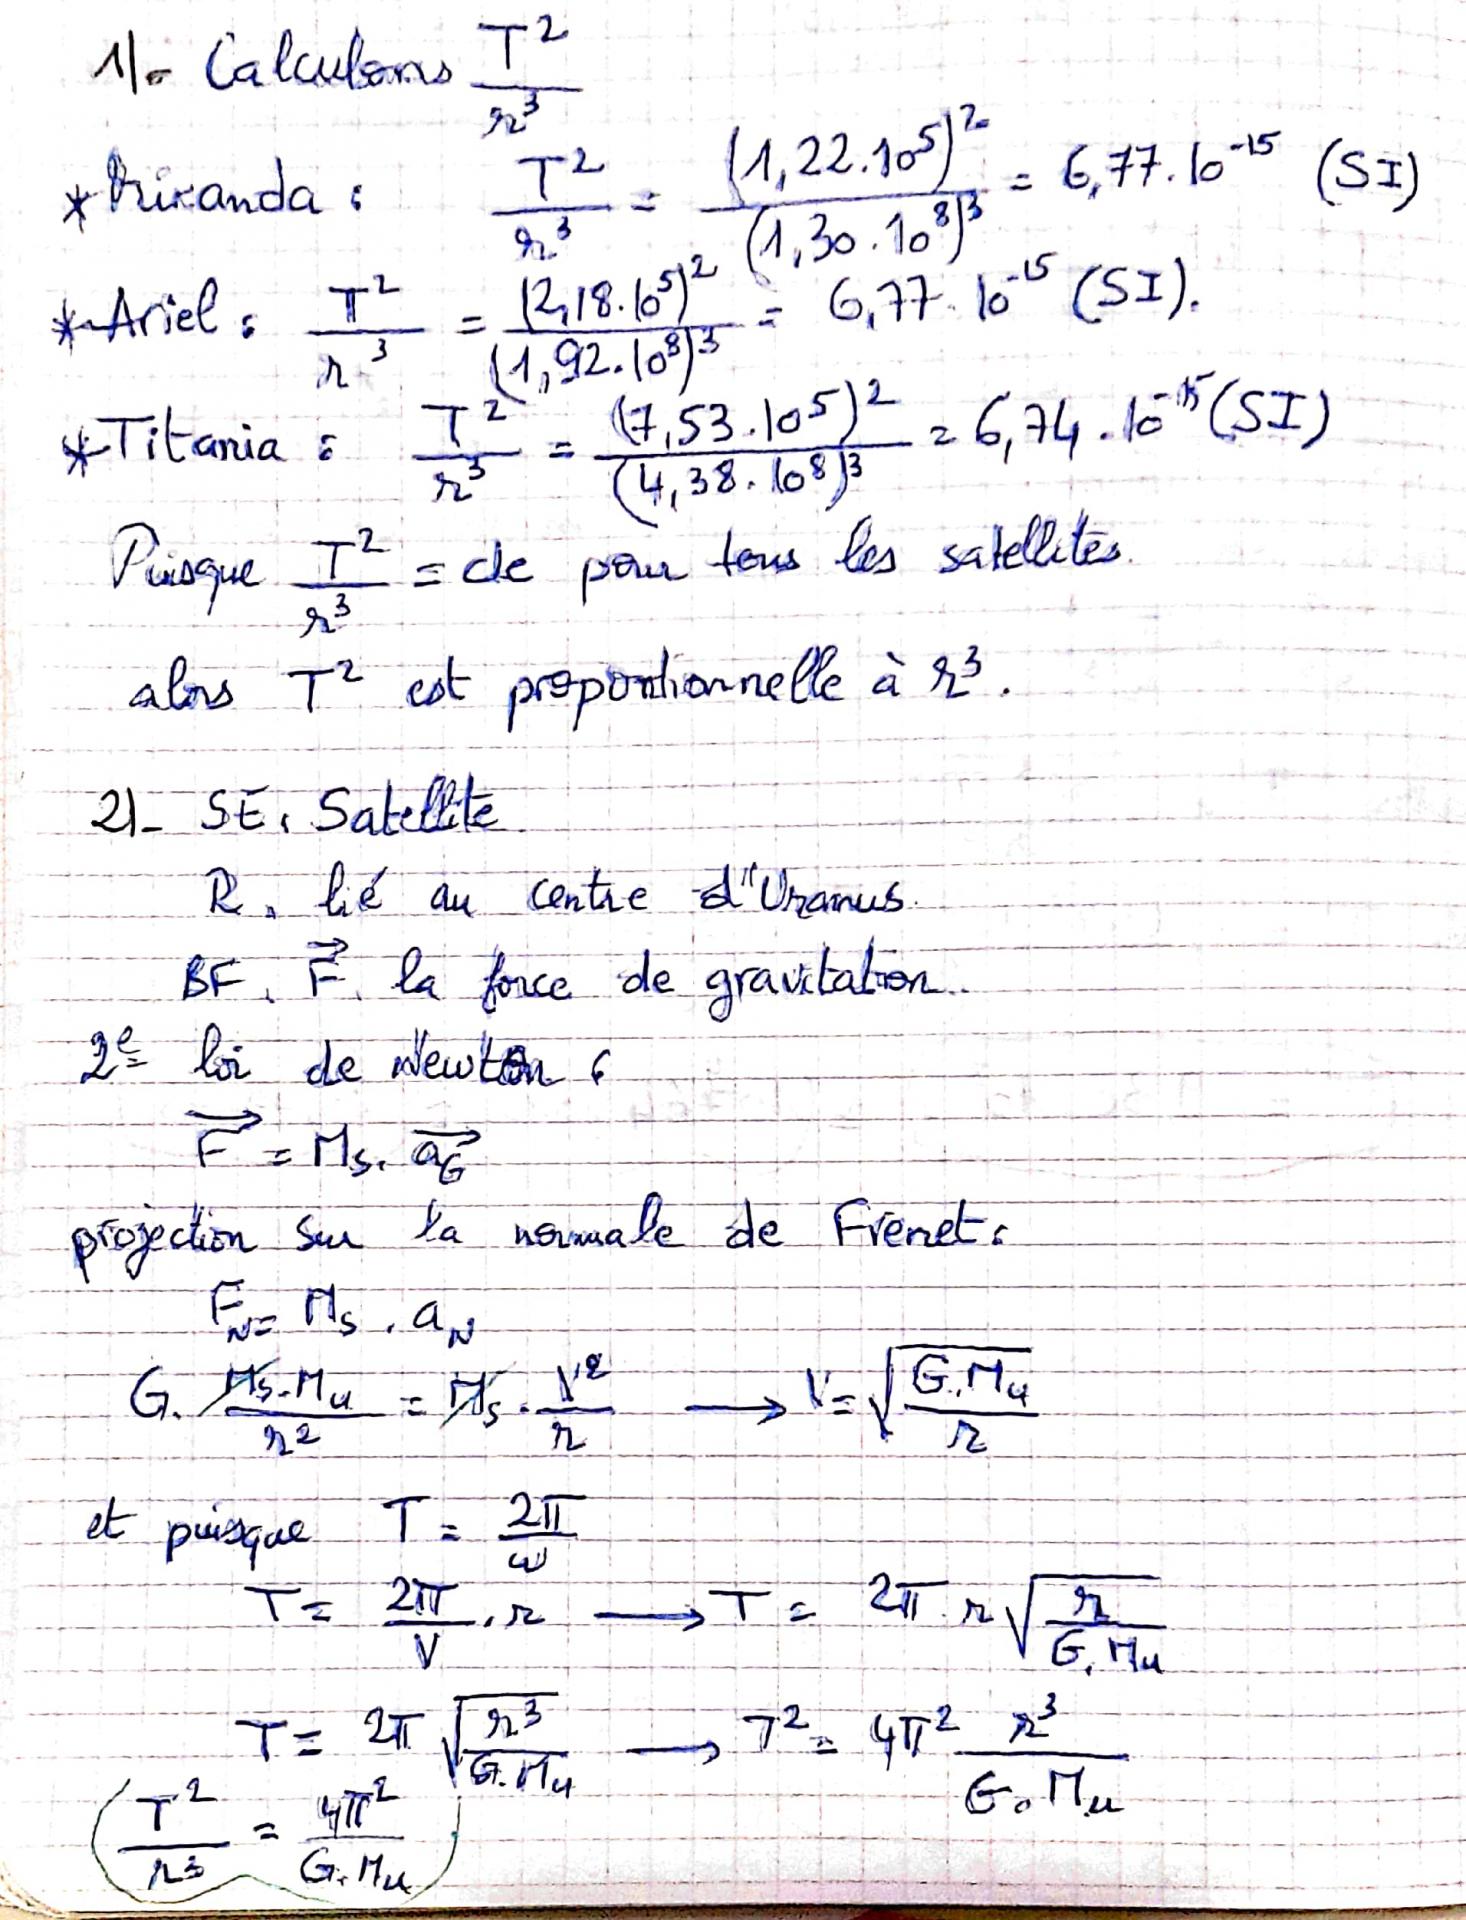 1)- Calculons T²/r³
* Miranda : T²/r³ = (1,22.10⁵)²/(1,30.10⁸)³ = 6,77.10⁻¹⁵ (SI)
* Ariel : T²/r³ = (2,18.10⁵)²/(1,92.10⁸)³ = 6,77.10⁻¹⁵ (SI).
* Titania : T²/r³ = (7,53.10⁵)²/(4,38.10⁸)³ = 6,74.10⁻¹⁵ (SI)
Puisque T²/r³ = cte pour tous les satellites.
alors T² est proportionnelle à r³.
2)- SE : Satellite
R : lié au centre d'Uranus.
BF : F⃗ : la force de gravitation.
2e loi de Newton :
F⃗ = Ms. a⃗G
projection sur la normale de Frenet :
FN = Ms . aN
G. Ms.Mu/r² = Ms . V²/r → V = √(G.Mu/r)
et puisque T = 2π/ω
T = 2π/V . r → T = 2π . r √(r/G.Mu)
T = 2π √(r³/G.Mu) → T² = 4π² r³/G.Mu
T²/r³ = 4π²/G.Mu